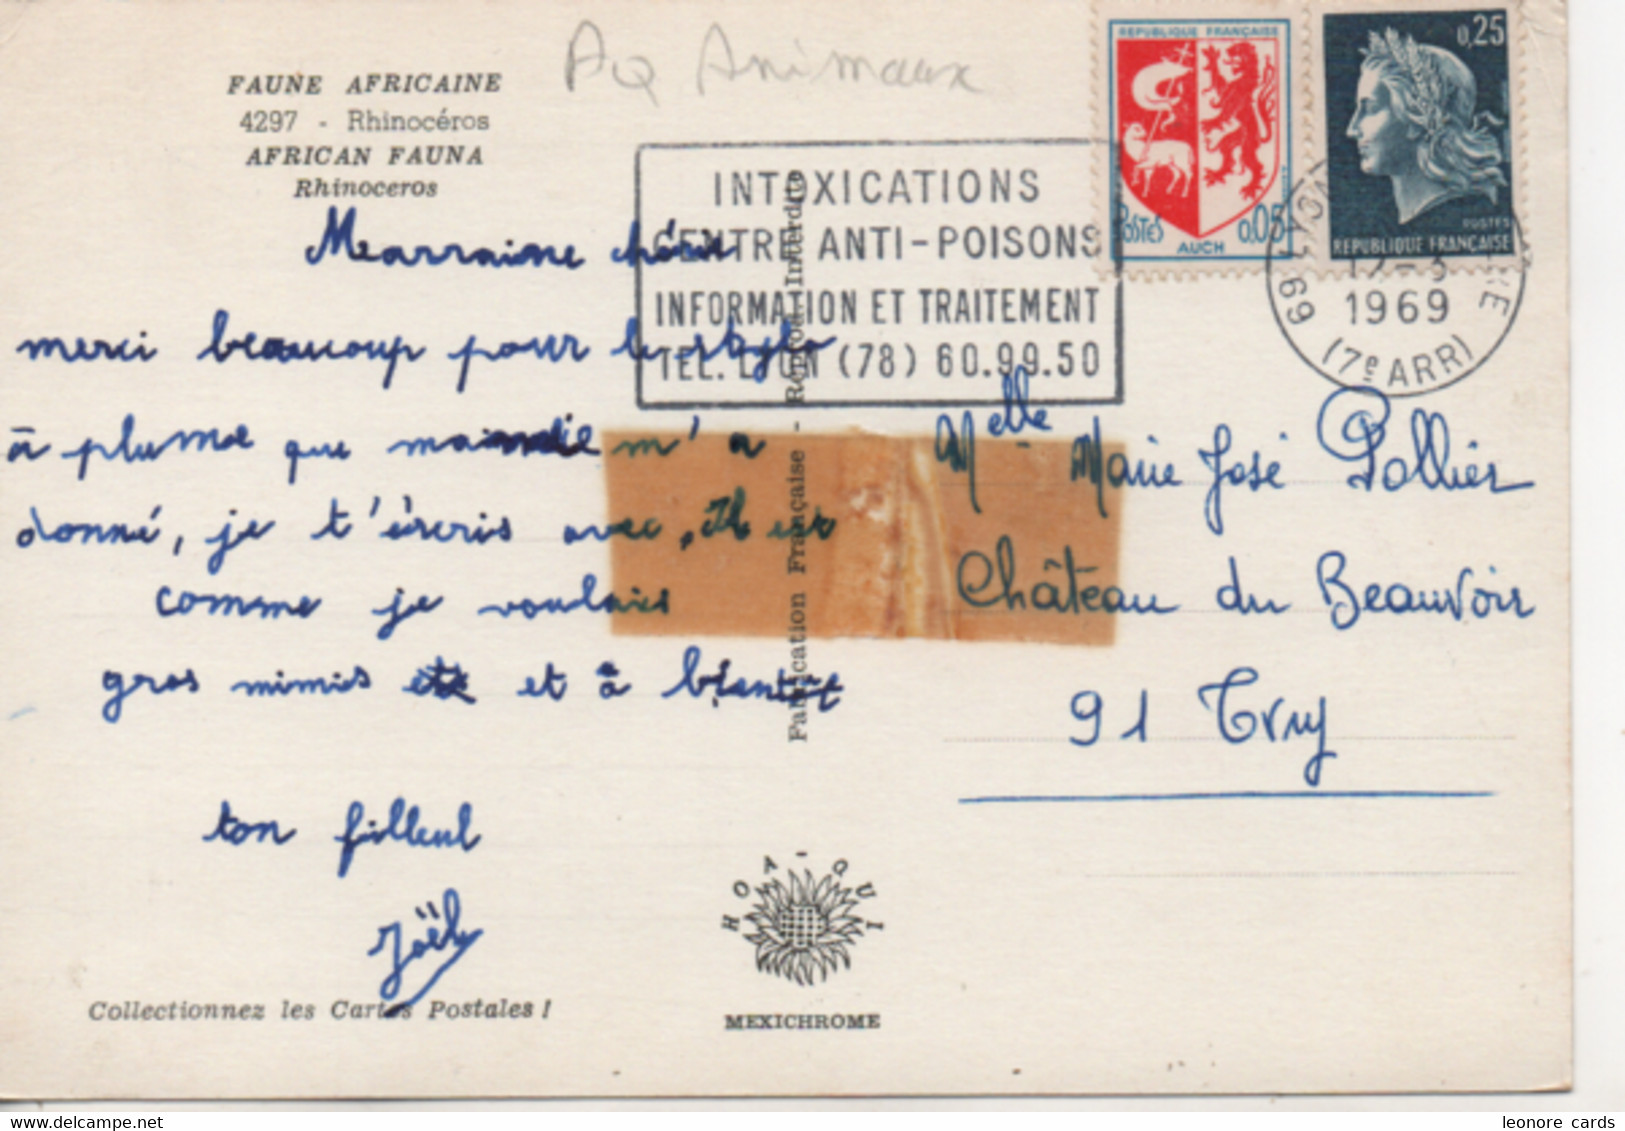 Aq Animaux
FAUNE AFRICAINE
4297 - Rhinocéros
AFRICAN FAUNA
Rhinoceros
INTOXICATIONS
CENTRE ANTI-POISONS
INFORMATION ET TRAITEMENT
TEL. LYON (78) 60.99.50
REPUBLIQUE FRANÇAISE
POSTES
0.05
AUCH
0,25
POSTES
REPUBLIQUE FRANÇAISE
69 LYON
1969
(7e ARR)
Marraine
merci beaucoup pour le stylo
à plume que mamie m'a
donné, je t'écris avec, Il est
comme je voulais
gros mimis et à bientôt
ton filleul
Joël
Melle Marie José Pallier
Château du Beauvoir
91 Evry
Fabrication Française - Reprod. Interdite
HOA-QUI
MEXICHROME
Collectionnez les Cartes Postales !
leonore cards